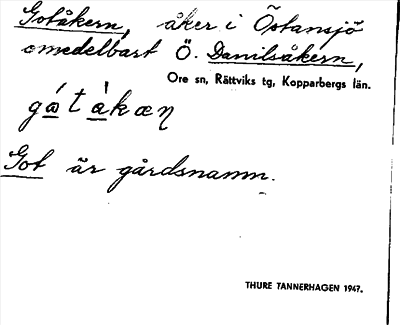 Gotåkern, åker i Östansjö
omedelbart Ö. Danilsåkern,
Ore sn, Rättviks tg, Kopparbergs län.
gátàkæn̥
Got är gårdsnamn.
THURE TANNERHAGEN 1947.